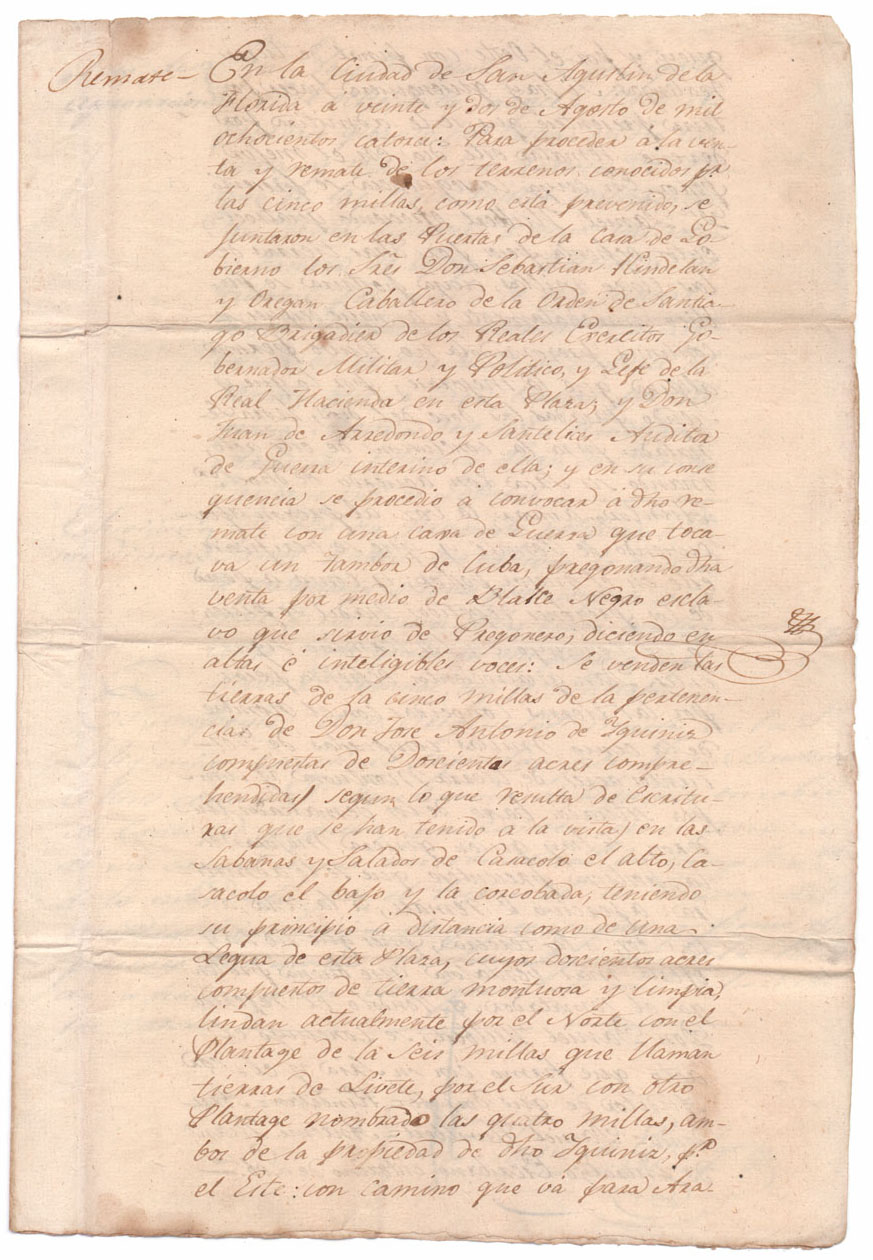 Remate - En la Ciudad de San Agustin de la
Florida á veinte y dos de Agosto de mil
ochocientos catorce: Para proceder a la ven-
ta y remate de los terrenos conocidos pr.
las cinco millas, como está prevenido, se
juntaron en las Puertas de la Casa de Go-
bierno los Sres. Don Sebastian Kindelan
y Oregan Caballero de la Orden de Santia-
go Brigadier de los Reales Exercitos Go-
bernador Militar y Politico, y Gefe de la
Real Hacienda en esta Plaza, y Don
Juan de Arredondo y Santelices Auditor
de Guerra interino de ella; y en su conse
quencia se procedio á convocar á dho re-
mate con una caxa de Guerra que toca-
va un tambor de Cuba, pregonando dha
venta por medio de Negro escla-
vo que sirvio de Pregonero, diciendo en
altas é inteligibles voces: Se venden las
tierras de la cinco millas de la pertenen-
cia de Don Jose Antonio de Yguiniz
compuestas de Doscientos acres compre-
hendidas segun lo que resulta de Escritu-
ras que se han tenido á la vista, en las
Sabanas y Salados de Casacolo el alto, Ca-
sacolo el bajo y la corcobada, teniendo
su principio á distancia como de una
Legua de esta Plaza, cuyos doscientos acres
compuestos de tierra montuosa y limpia,
lindan actualmente por el Norte con el
Plantage de la Seis millas que llaman
tierras de Livete, por el Sur con otro
Plantage nombrado las quatro millas, am-
bos de la propiedad de dho Yguiniz, pr.
el Este: con camino que vá para Ara-